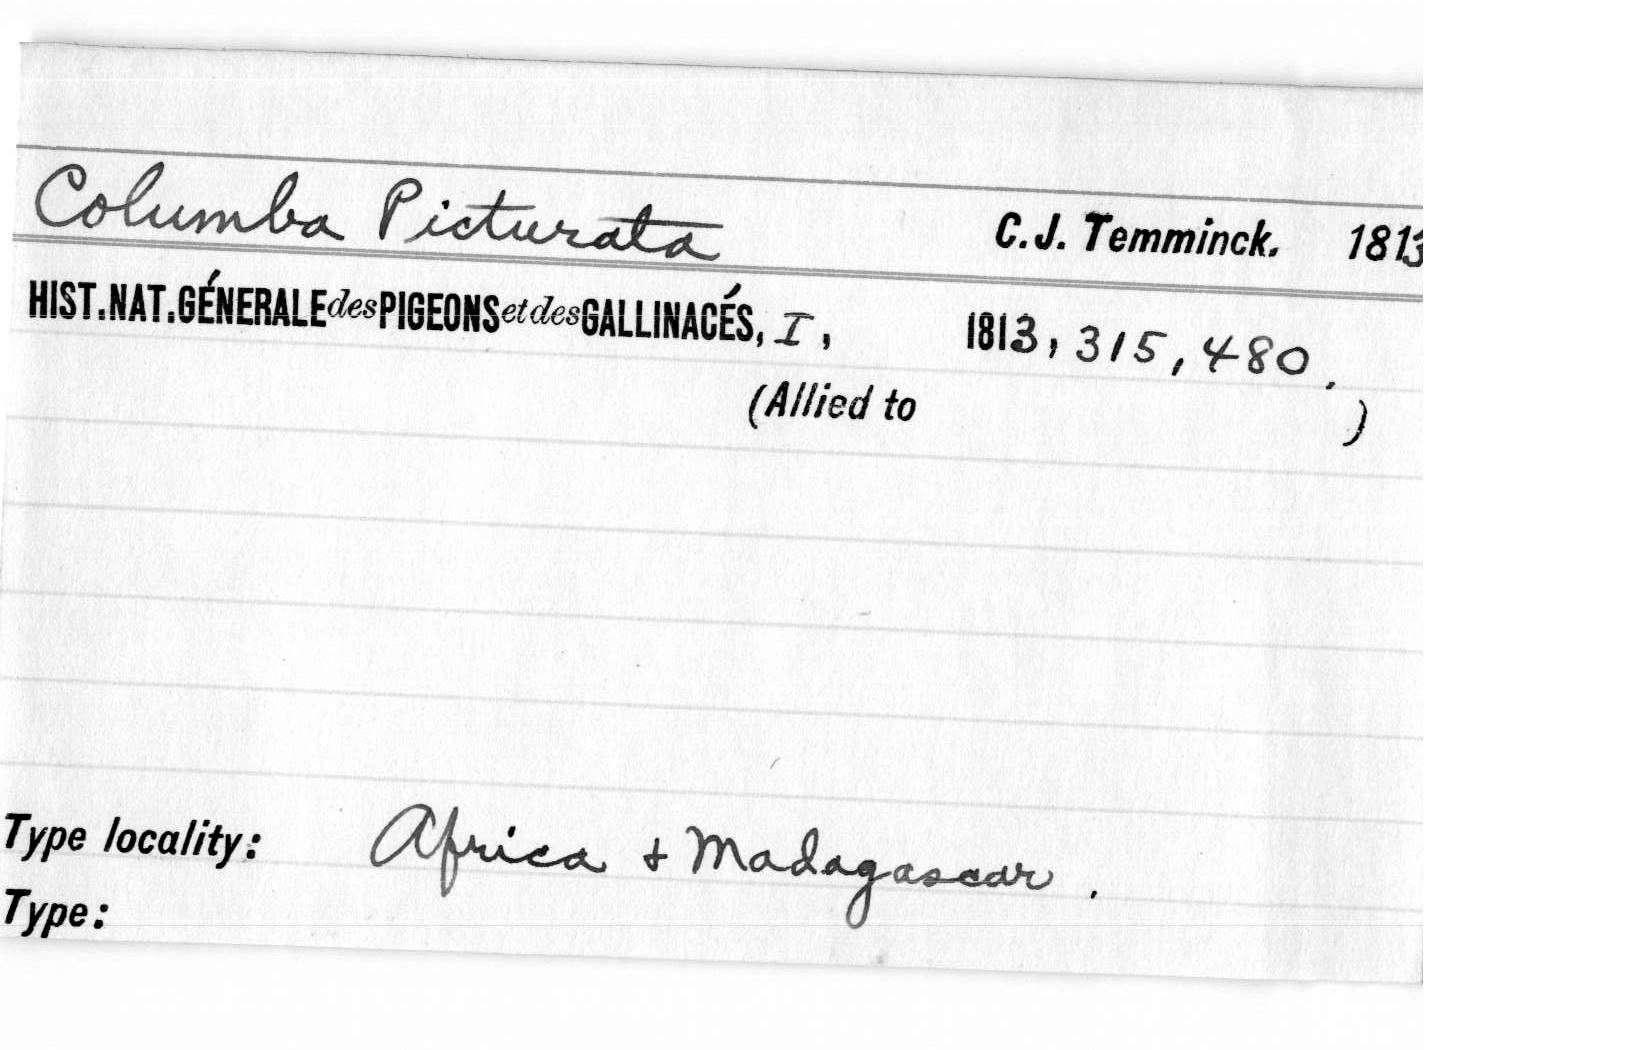 Columba Picturata C.J. Temminck. 1813
HIST.NAT.GÉNERALE des PIGEONS et des GALLINACÉS, I, 1813, 315, 480.
(Allied to )
Type locality: Africa & Madagascar.
Type: